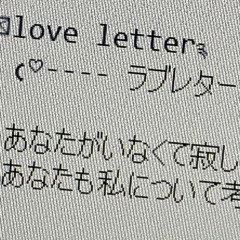 love letter
(♡---- ラブレター
あなたがいなくて寂し
あなたも私について考